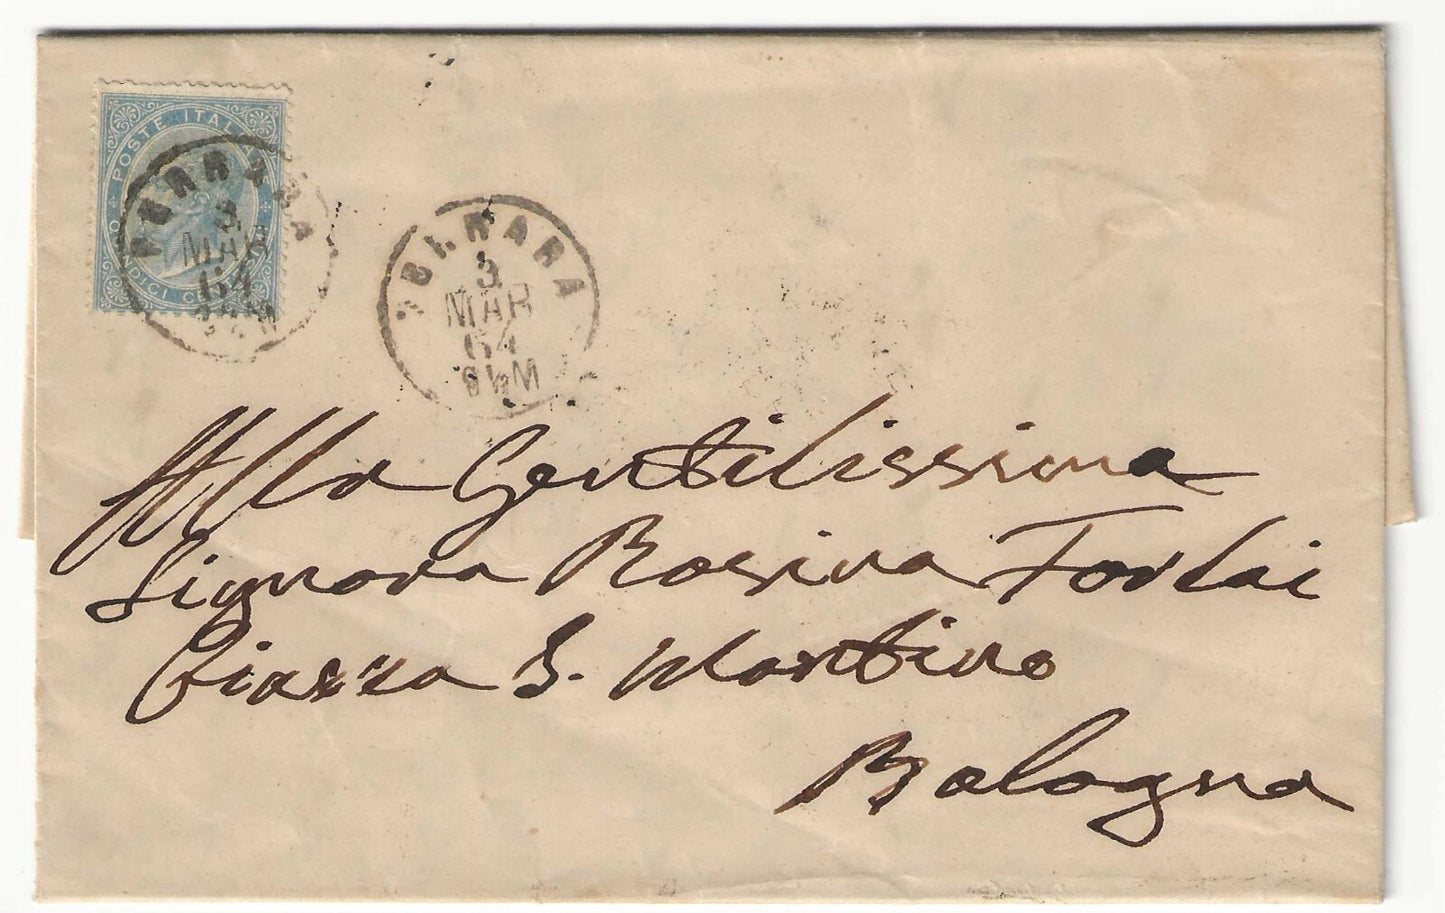 POSTE ITALIANE
FERRARA
3
MAR
64
FERRARA
3
MAR
64
8½M
Alla Gentilissima
Signora Rosina Forlai
Piazza S. Martino
Bologna